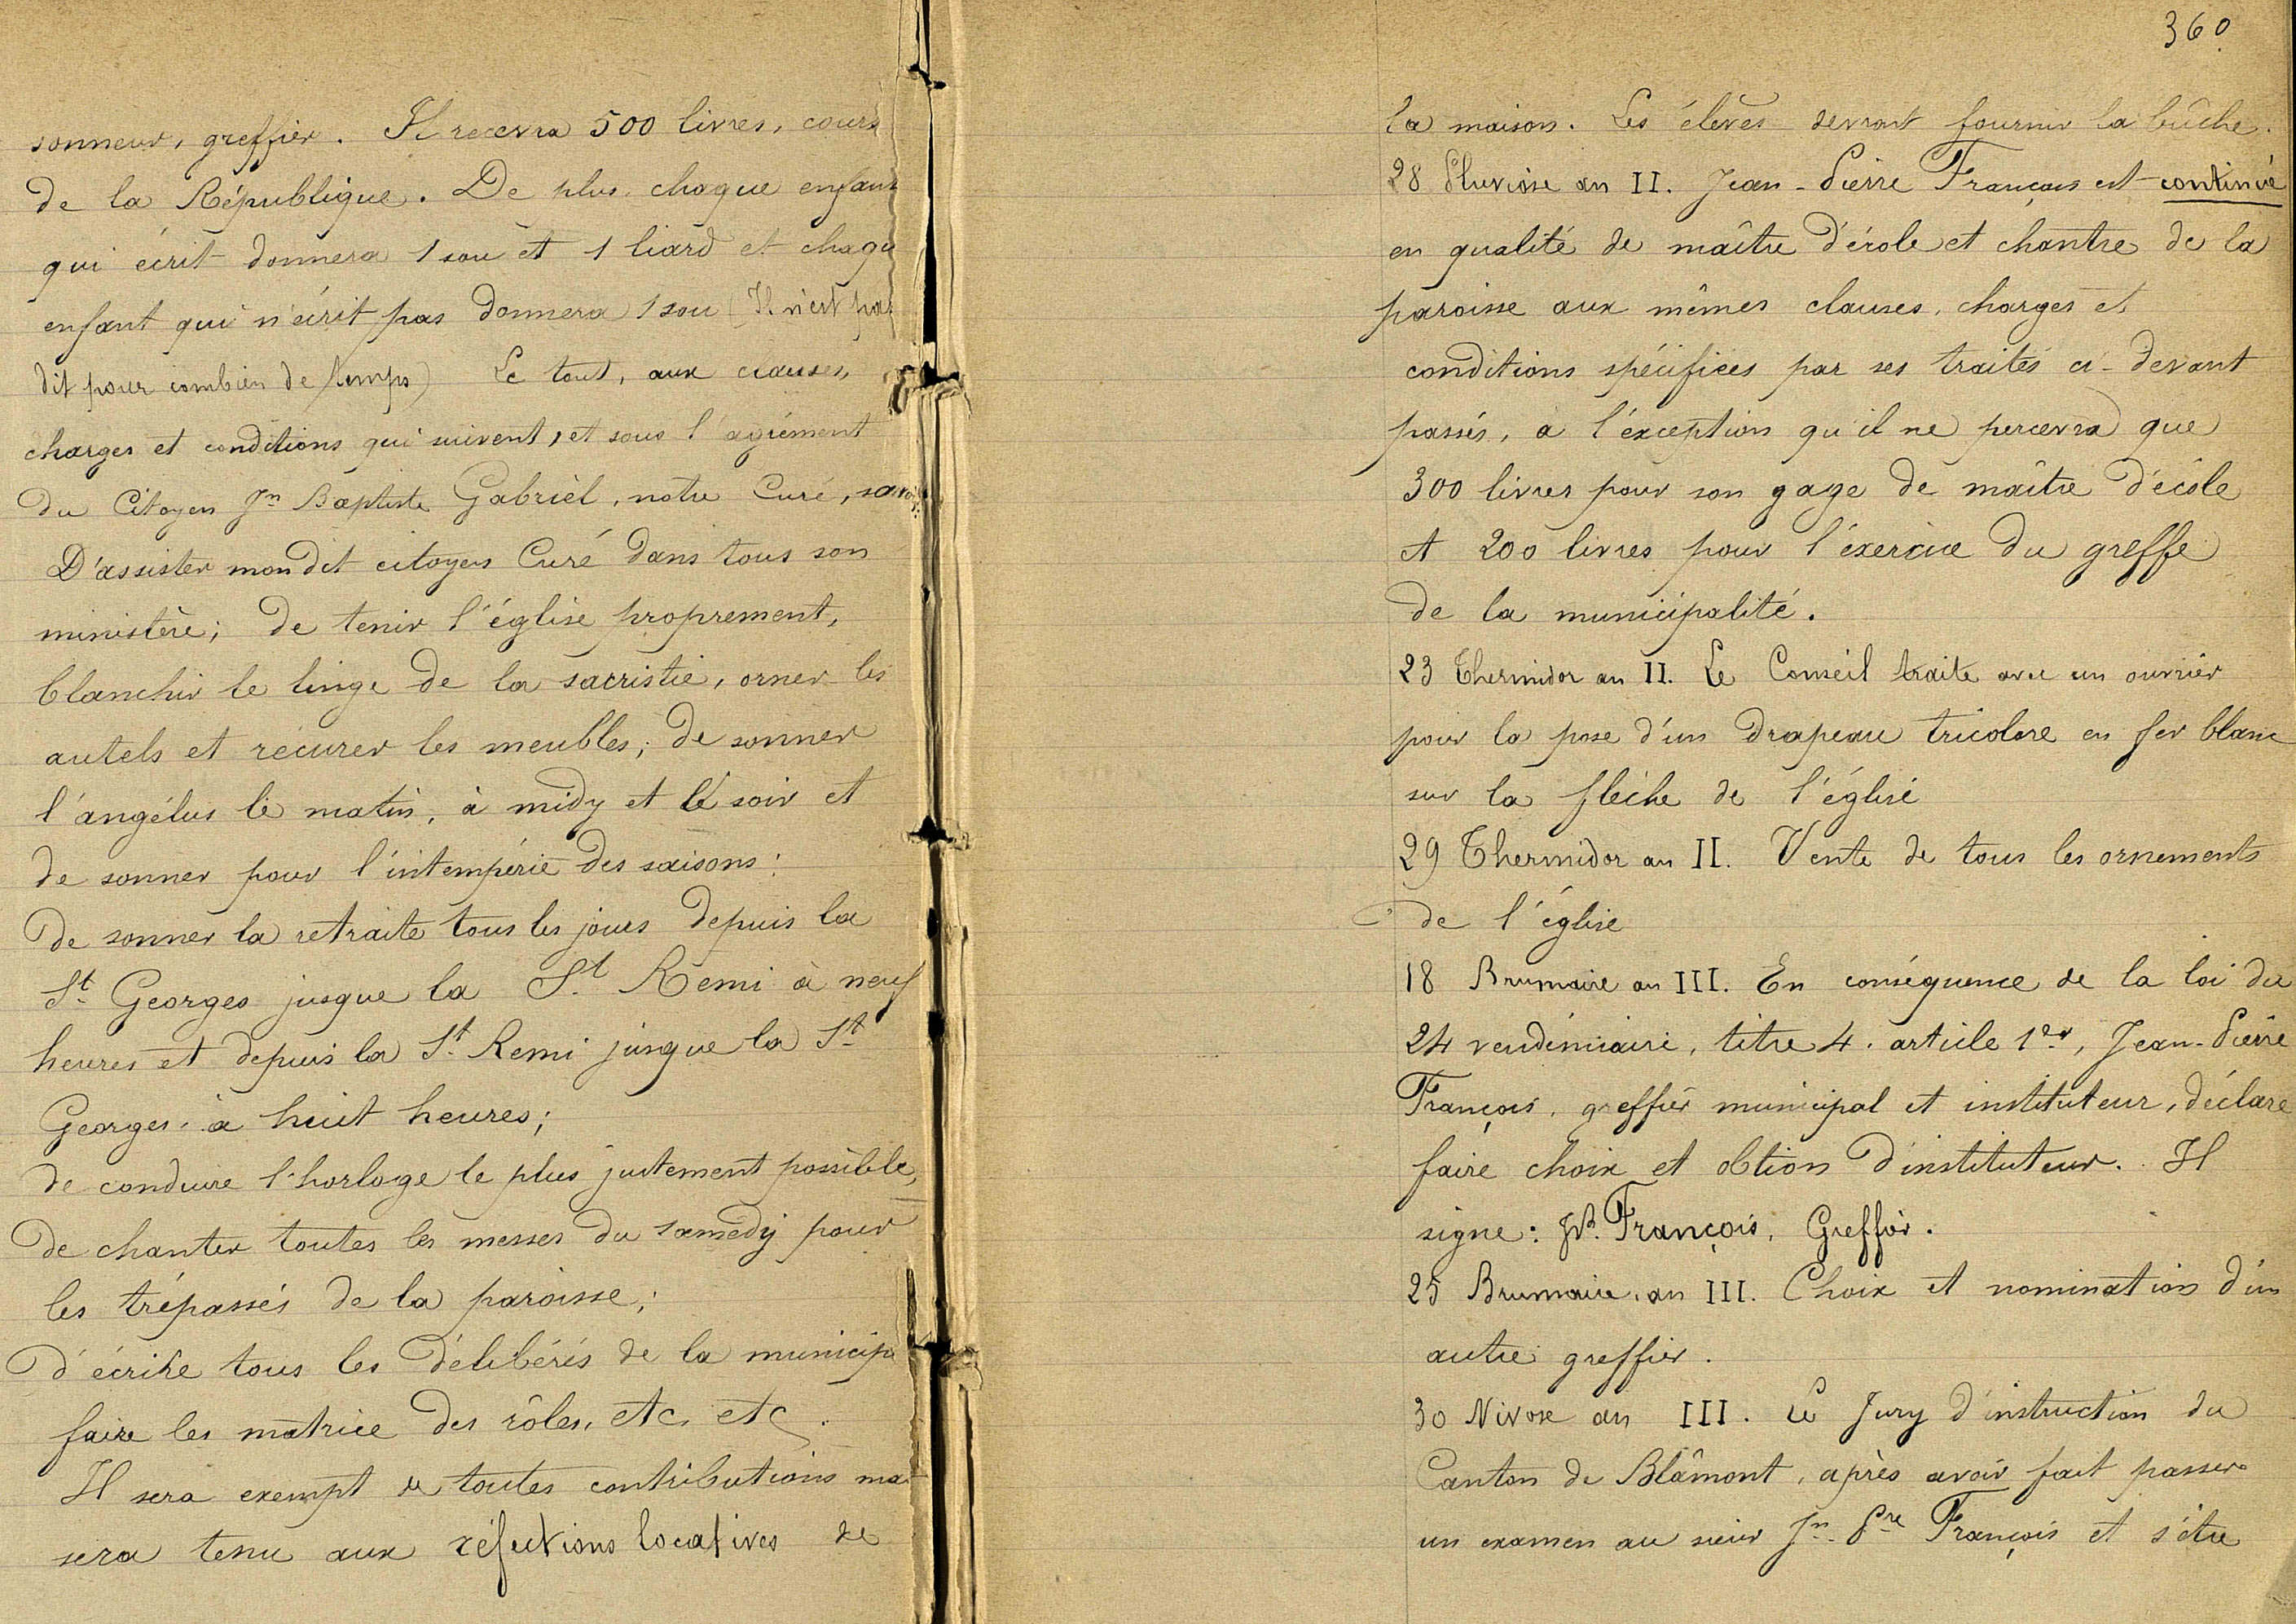 sonneur, greffier. Il recevra 500 livres, cours
de la République. De plus chaque enfant
qui écrit donnera 1 sou et 1 liard et chaqu
enfant qui n'écrit pas donnera 1 sou (Il n'est pas
dit pour combien de temps) Le tout, aux clauses,
charges et conditions qui suivent, et sous l'agrément
du Citoyen Jn Baptiste Gabriel, notre Curé, savoir:
D'assister mondit citoyen Curé dans tous son
ministère; de tenir l'église proprement,
blanchir le linge de la sacristie, orner les
autels et récurer les meubles; de sonner
l'angélus le matin, à midy et le soir et
de sonner pour l'intempérie des saisons:
de sonner la retraite tous les jours depuis la
St Georges jusque la St Remi à neuf
heures et depuis la St Remi jusque la St
Georges à huit heures;
de conduire l'horloge le plus justement possible,
de chanter toutes les messes du samedy pour
les trépassés de la paroisse;
d'écrire tous les délibérés de la municip
faire les matrice des rôles, etc, etc.
Il sera exempt de toutes contributions mai
sera tenu aux réfections locatives de
360
la maison. Les élèves devront fournir la bûche.
28 Pluviôse an II. Jean-Pierre François est continué
en qualité de maître d'école et chantre de la
paroisse aux mêmes clauses, charges et
conditions spécifiées par ses traités ci-devant
passés, à l'exception qu'il ne percevra que
300 livres pour son gage de maître d'école
et 200 livres pour l'exercice du greffe
de la municipalité.
23 Thermidor an II. Le Conseil traite avec un ouvrier
pour la pose d'un drapeau tricolore en fer blanc
sur la flèche de l'église
29 Thermidor an II. Vente de tous les ornements
de l'église
18 Brumaire an III. En conséquence de la loi du
24 vendémiaire, titre 4. article 1er, Jean-Pierre
François, greffier municipal et instituteur, déclare
faire choix et obtion d'instituteur. Il
signe: JP. François, Greffier.
25 Brumaire, an III. Choix et nomination d'un
autre greffier.
30 Nivose an III. Le Jury d'instruction du
Canton de Blâmont, après avoir fait passer
un examen au sieur Jn Pre François et s'être